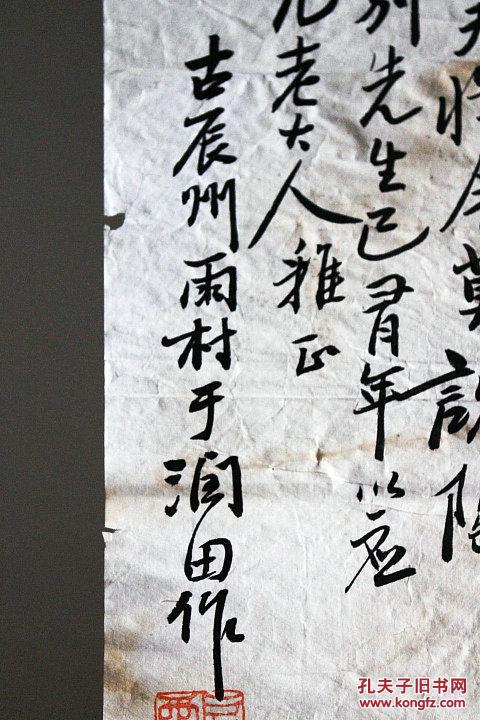 将今莫說陶
别先生已年以应
老大人雅正
古辰州雨村于润田作
孔夫子旧书网
www.kongfz.com